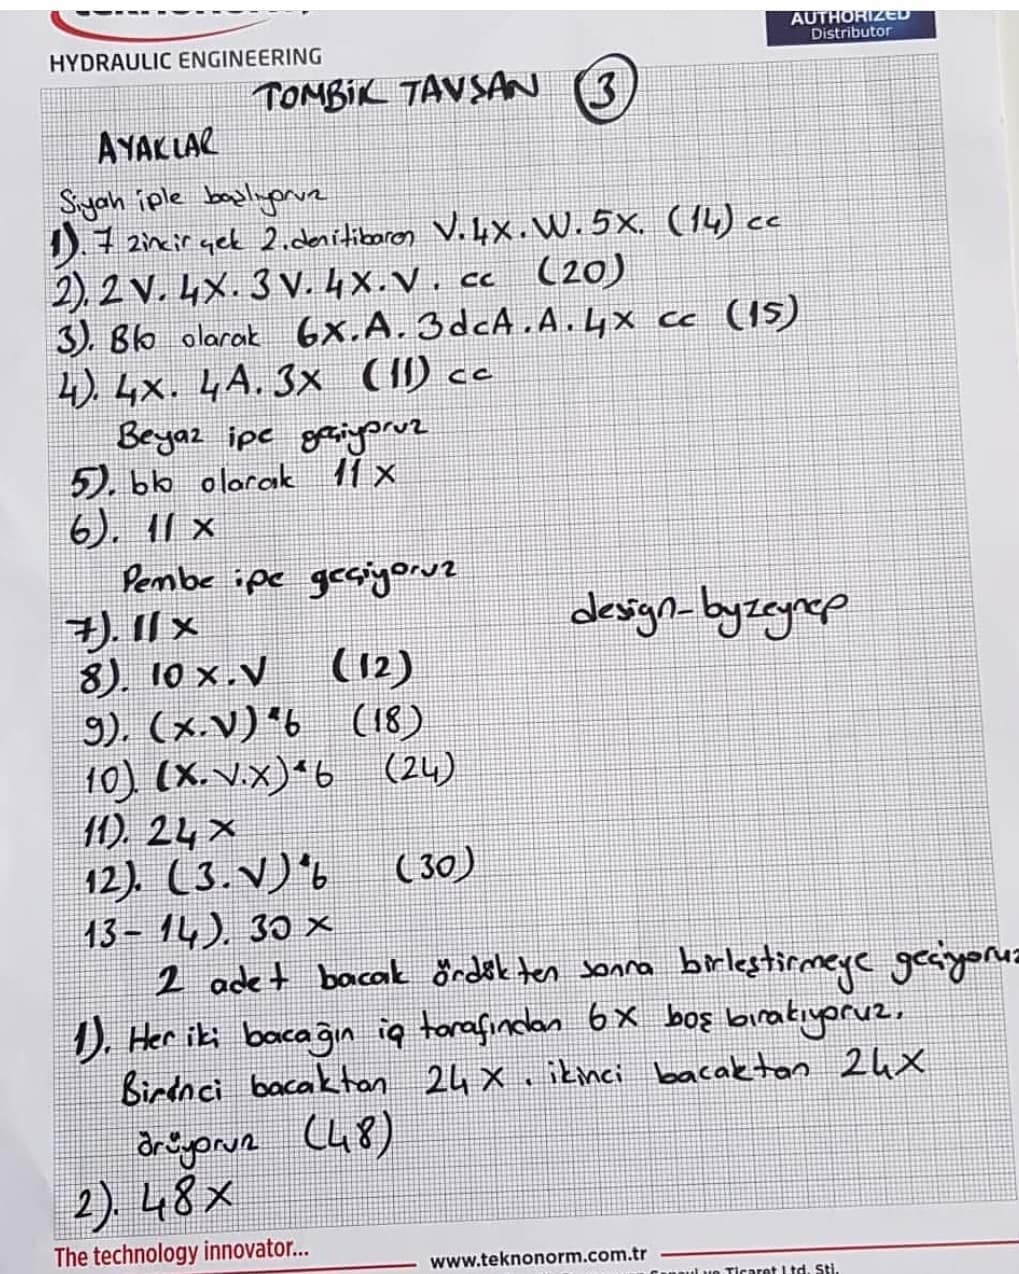 AUTHORIZED
Distributor
HYDRAULIC ENGINEERING
TOMBİK TAVŞAN 3
AYAKLAR
Siyah iple başlıyoruz
1). 7 zincir çek 2.den itibaren V.4X.W.5X. (14) cc
2). 2V.4X.3V.4X.V. cc (20)
3). Blo olarak 6X.A.3dcA.A.4X cc (15)
4). 4X. 4A. 3X (11) cc
Beyaz ipe geçiyoruz
5). blo olarak 11 X
6). 11 X
Pembe ipe geçiyoruz
7). 11 X
8). 10 X.V (12)
9). (X.V)*6 (18)
10). (X.V.X)*6 (24)
11). 24 X
12). (3.V)*6 (30)
13-14). 30 X
design-byzeynep
2 adet bacak ördükten sonra birleştirmeye geçiyoruz
1). Her iki bacağın iç tarafından 6X boş bırakıyoruz.
Birinci bacaktan 24X. ikinci bacaktan 24X
örüyoruz (48)
2). 48X
The technology innovator...
www.teknonorm.com.tr
Ticaret Ltd. Şti.